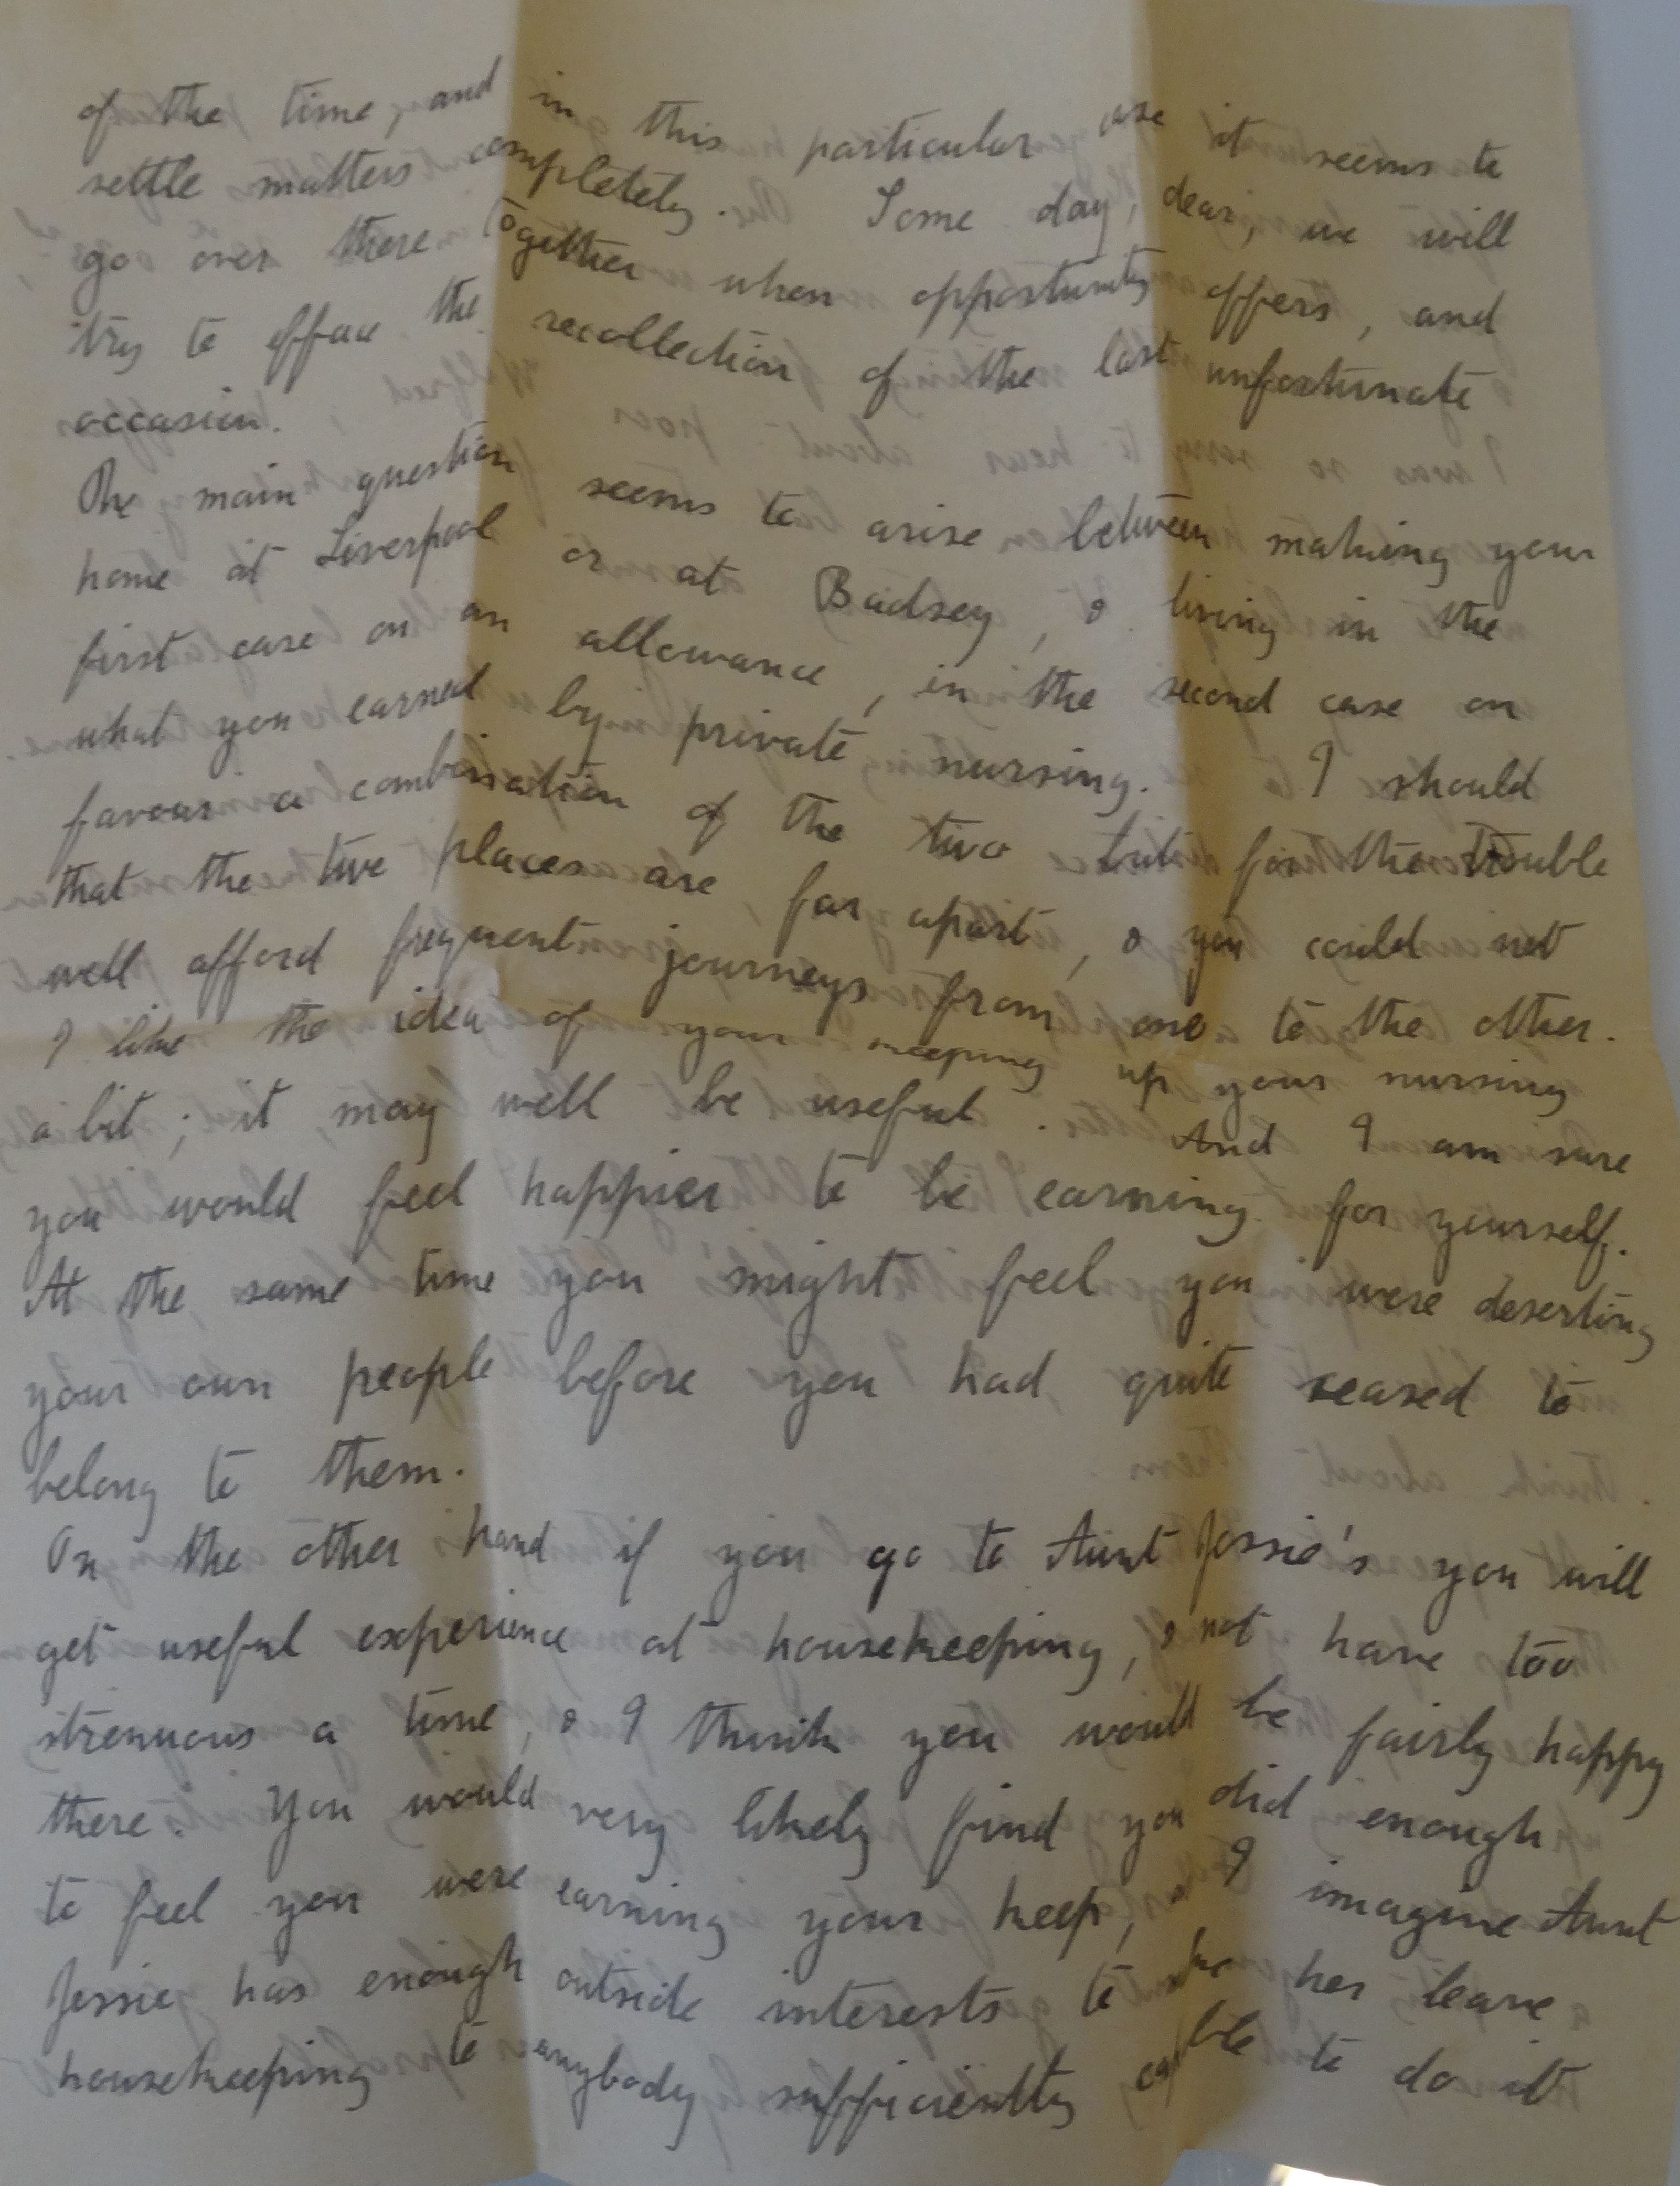 of the time, and in this particular case it seems to
settle matters completely. Some day, dear, we will
go over there together when opportunity offers, and
try to efface the recollection of the last unfortunate
occasion.
The main question seems to arise between making your
home at Liverpool or at Badsey, & living in the
first case on an allowance, in the second case on
what you earned by private nursing. I should
favour a combination of the two but for the trouble
that the two places are far apart, & you could not
well afford frequent journeys from one to the other.
I like the idea of your keeping up your nursing
a bit; it may well be useful. And I am sure
you would feel happier to be earning for yourself.
At the same time you might feel you were deserting
your own people before you had quite ceased to
belong to them.
On the other hand if you go to Aunt Jessie's you will
get useful experience at housekeeping, & not have too
strenuous a time, & I think you would be fairly happy
there. You would very likely find you did enough
to feel you were earning your keep, & I imagine Aunt
Jessie has enough outside interests to make her leave
housekeeping to anybody sufficiently capable to do it